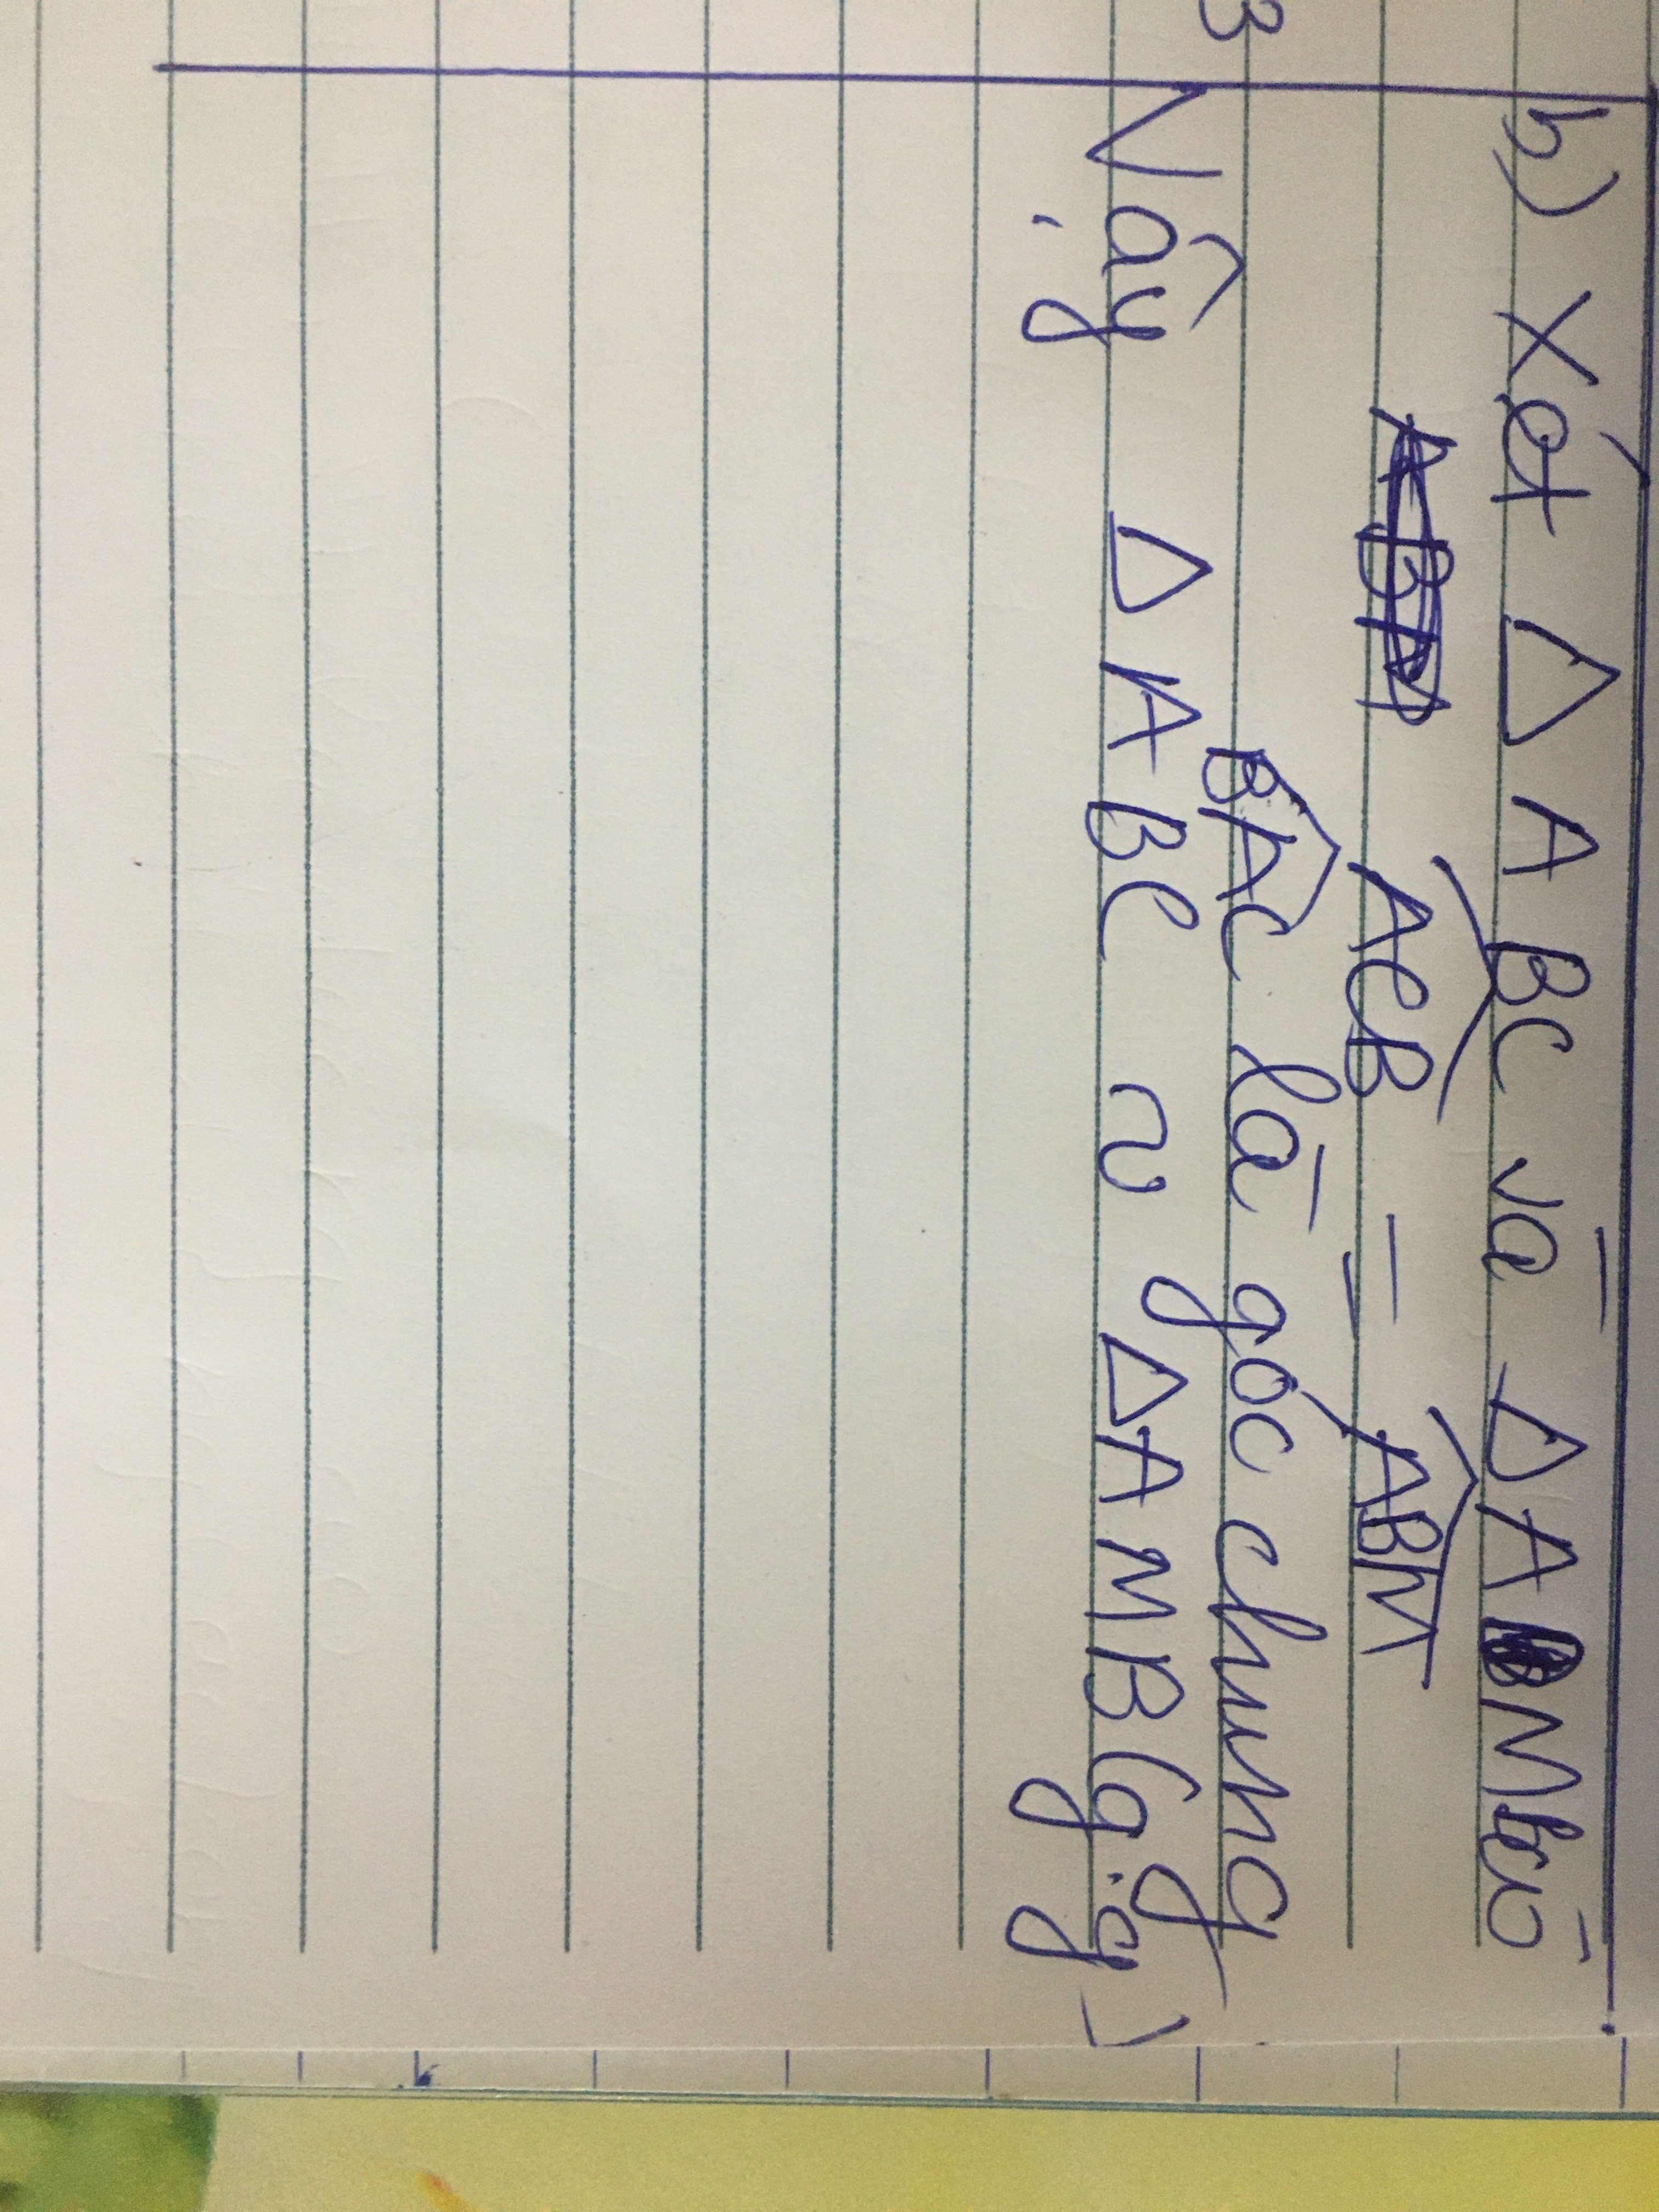 b) Xét Δ ABC và Δ AMB có
ACB = ABM
BAC là góc chung
Vậy Δ ABC ~ Δ AMB (g.g)
3